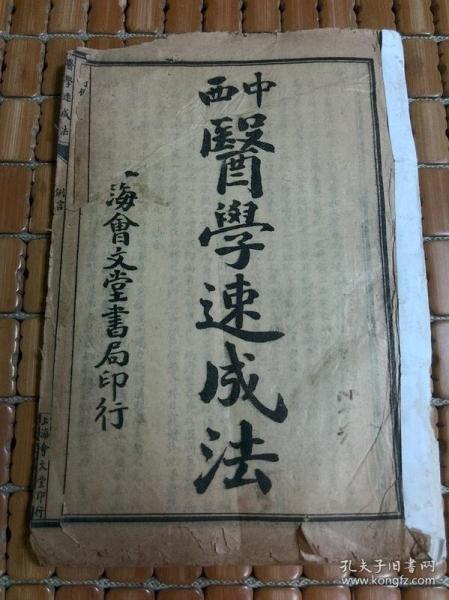 中西
醫學速成法
海會文堂書局印行
學速成法
上海會文堂印行
孔夫子旧书网
www.kongfz.com